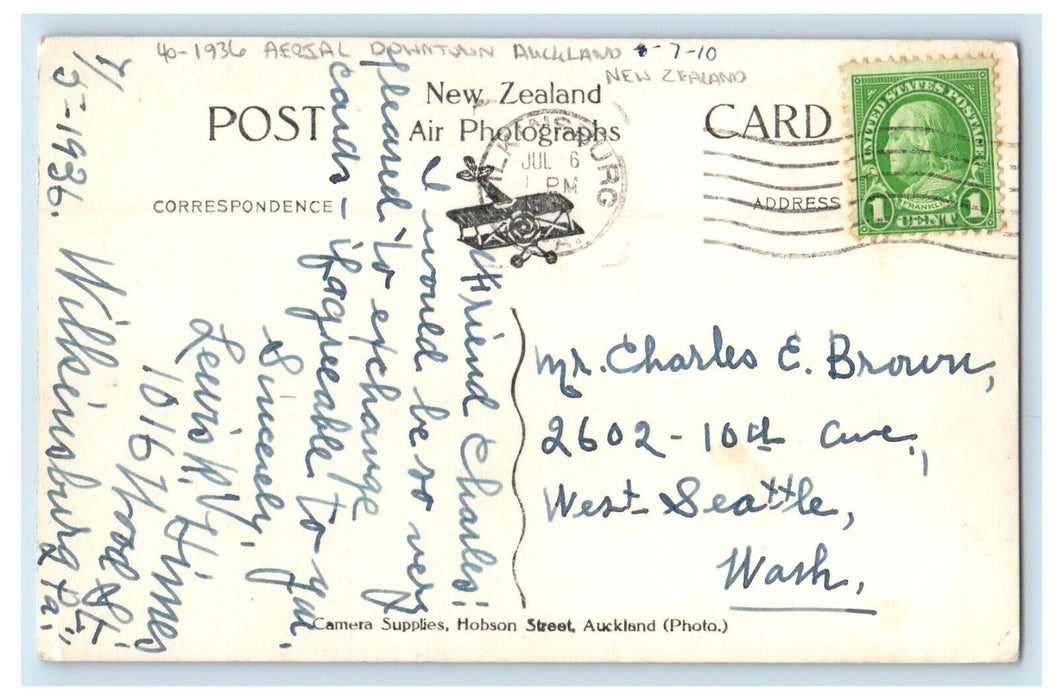 40-1936 AERIAL DOWNTOWN AUCKLAND 7-10
NEW ZEALAND
POST CARD
New Zealand
Air Photographs
CORRESPONDENCE
ADDRESS
WILKINSBURG
JUL 6
1 PM
PA.
UNITED STATES POSTAGE
FRANKLIN
1 CENT 1
Friend Charles:
I would be so very
pleased to exchange
cards - if agreeable to you.
Sincerely,
Lewis W. Himes
1016 Wood St.
Wilkinsburg Pa.
7/5-1936.
Mr. Charles E. Brown,
2602-10th Ave.,
West Seattle,
Wash.
Camera Supplies, Hobson Street, Auckland (Photo.)